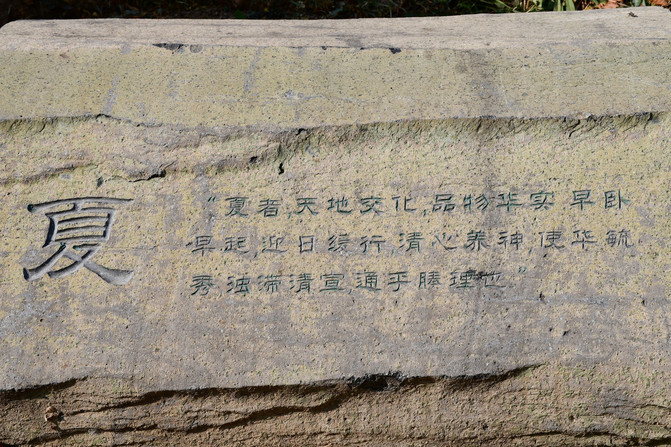 夏
“夏者,天地交化,品物华实.早卧
早起,迎日缓行,清心养神,使华毓
秀,浊滞清宣,通乎腠理也”